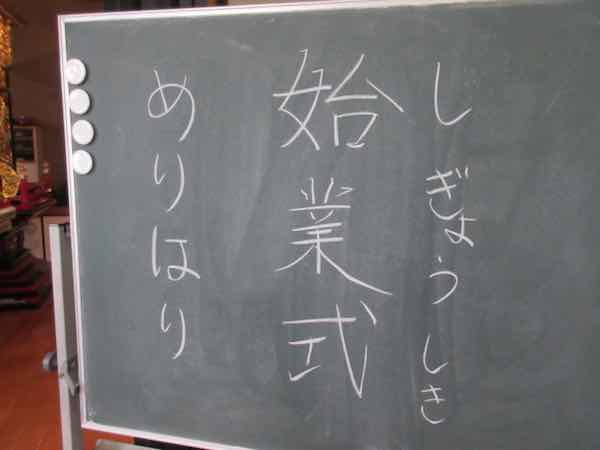 しぎょうしき
始業式
めりはり